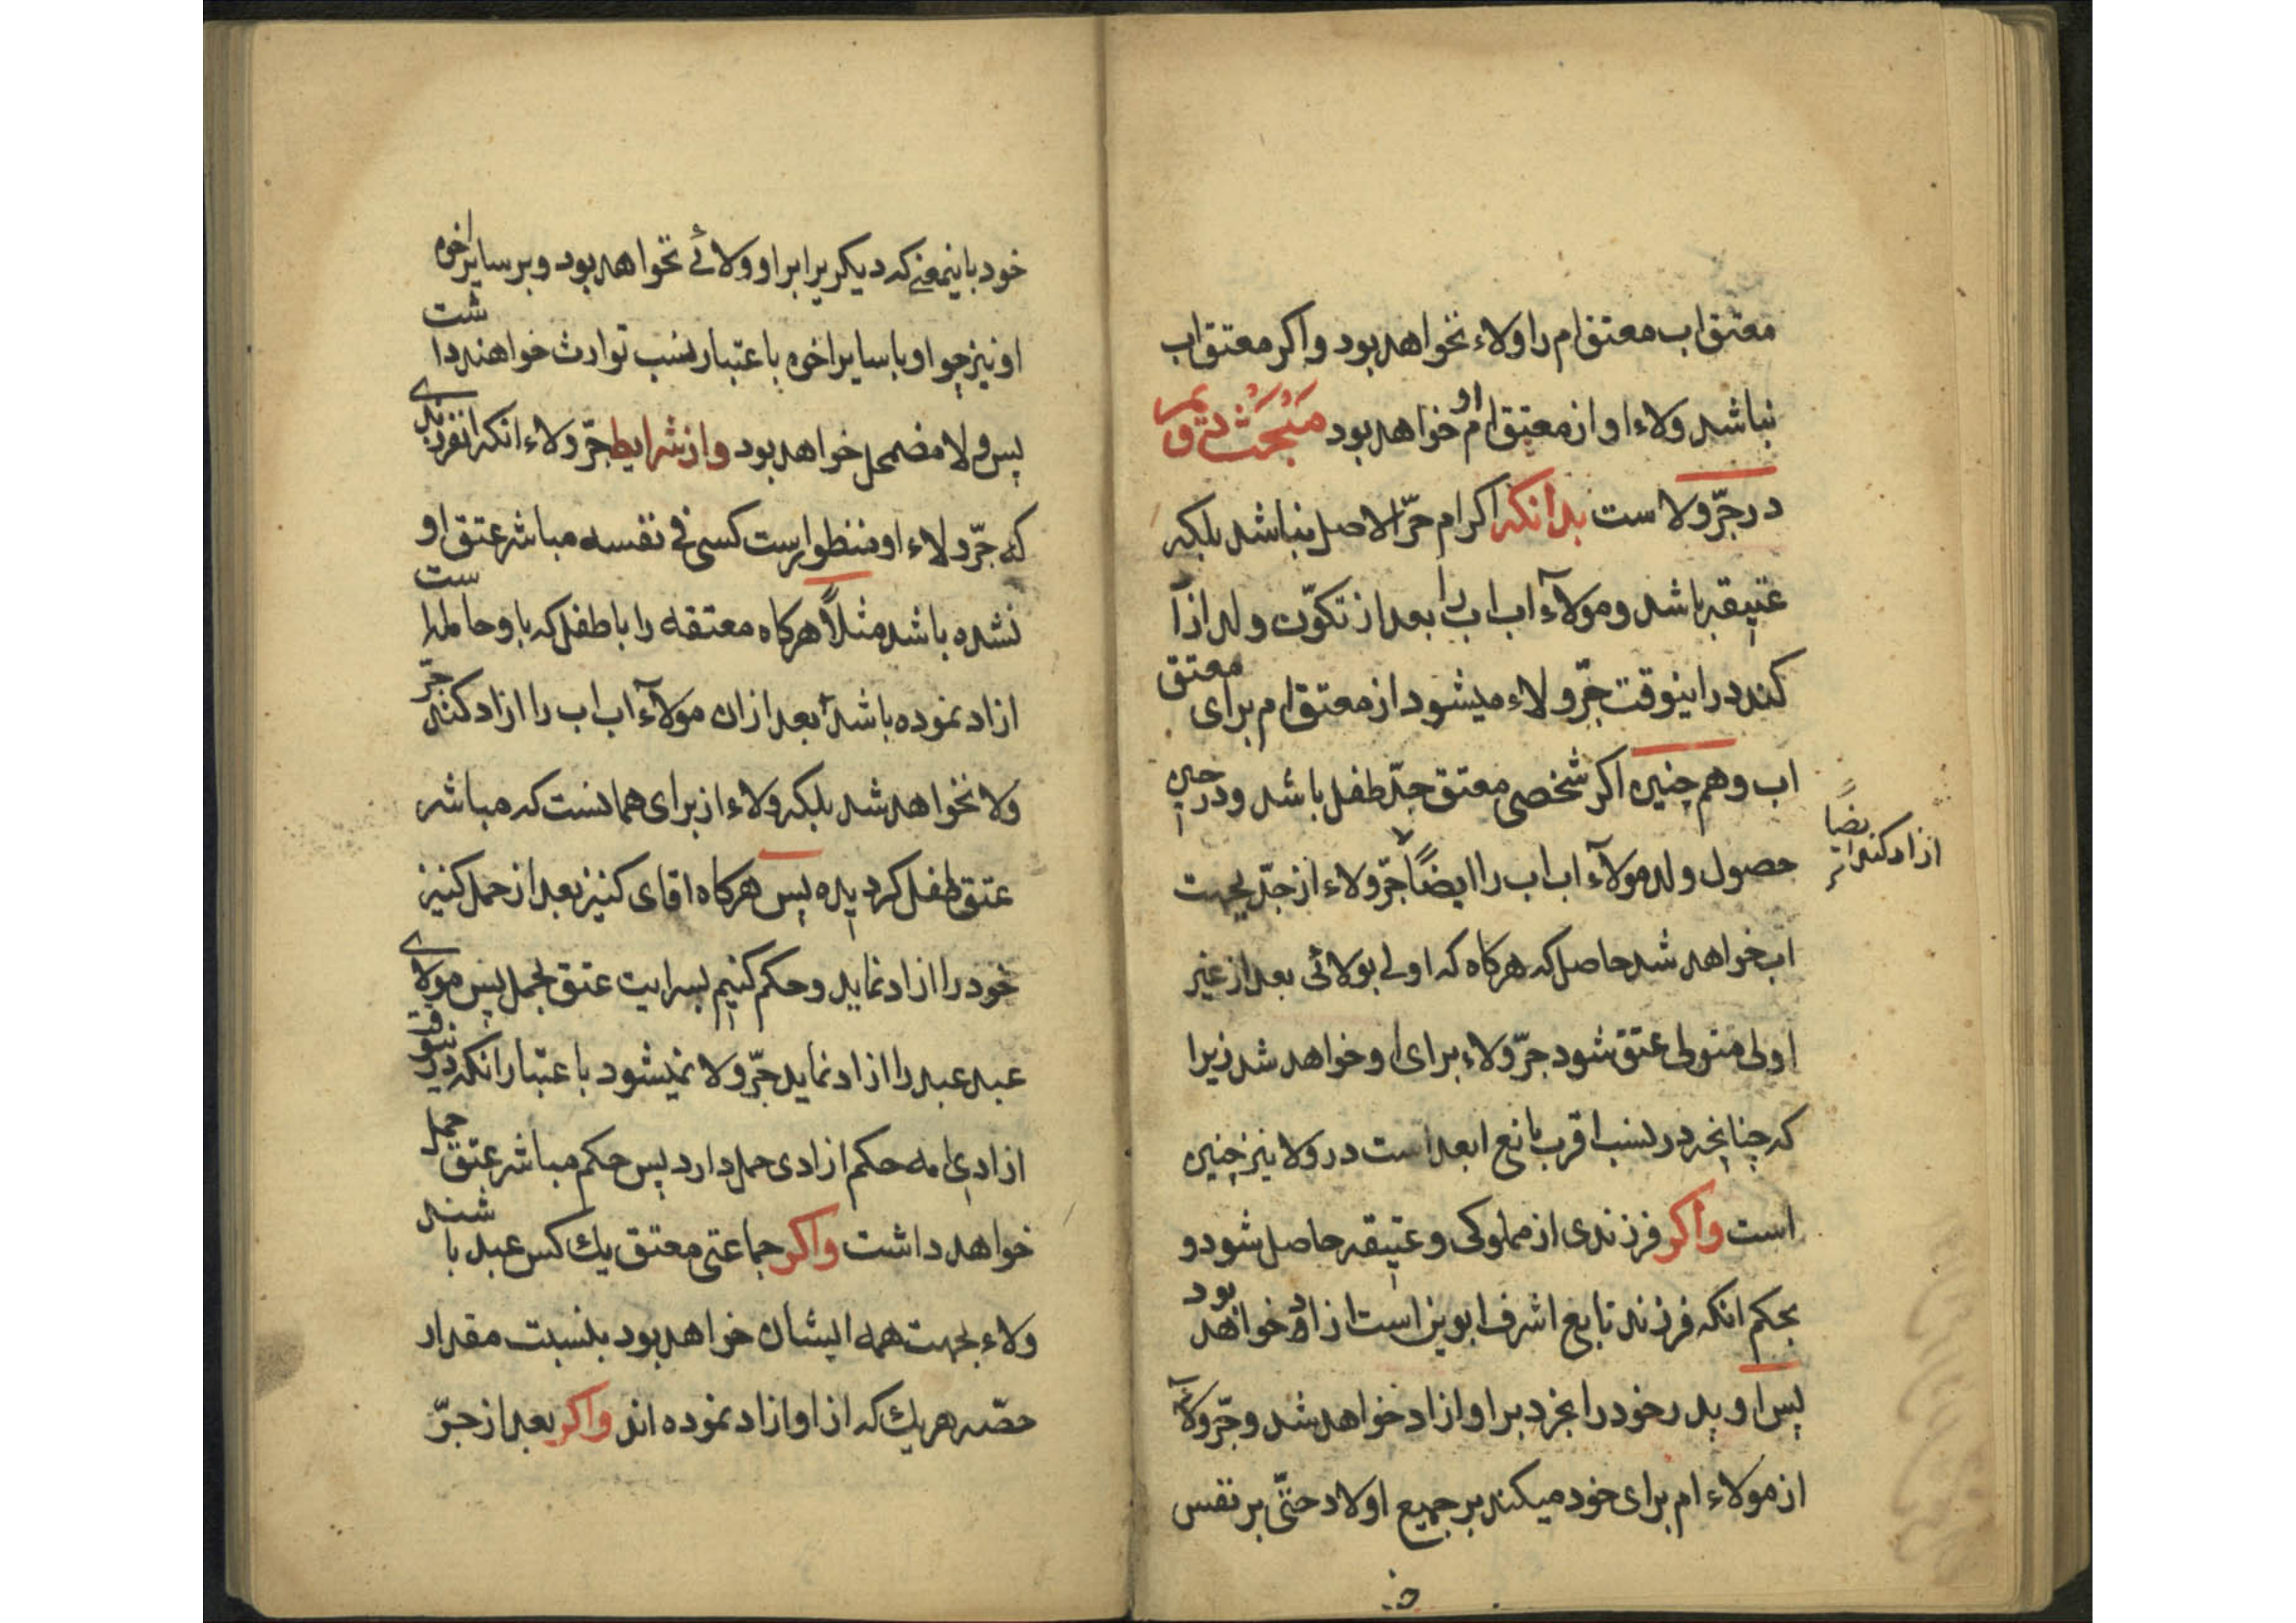 معتق اب معتق ام را ولاء نخواهد بود و اکر معتق اب
نباشد ولاء او از معتق ام او خواهد بود مبحث دیم
در جرّ ولاست بدانکه اکر ام حرّ الاصل نباشد بلکه
عتیقه باشد و مولآء اب اب را بعد از تکوّن ولد ازآ
کند در اینوقت جرّ ولاء میشود از معتق ام برای معتق
اب و هم چنین اکر شخصی معتق جدّ طفل باشد و در حین
حصول ولد مولآء اب اب را ایضاً جرّ ولاء از جدّ بجهت
ازاد کند ایضاً
اب خواهد شد حاصل که هرکاه که اولی بولائی بعد از غیر
اولی متولی عتق شود جرّ ولاء برای او خواهد شد زیرا
که چنانچه در نسب اقرب مانع ابعد است در ولا نیز چنین
است و اکر فرزندی از مملوکی و عتیقه حاصل شود و
بحکم انکه فرزند تابع اشرف ابوین است ازاد خواهد بود
پس او پدر خود را بخرد بر او ازاد خواهد شد و جرّ ولآء
از مولاء ام برای خود میکند بر جمیع اولاد حتّی بر نفس
خود باینمعنی که دیکر برابر او ولائے نخواهد بود و بر سایر اخوه
او نیز چو او با سایر اخوه باعتبار نسب توارث خواهند داشت
پس ولا مضمحل خواهد بود و از شرایط جرّ ولاء انکه انفرزندی
که جرّ ولاء او منظور است کسی فی نفسه مباشر عتق او
نشده باشد مثلاً هرکاه معتقه را با طفل که باو حامله است
ازاد نموده باشد بعد ازان مولآء اب اب را ازاد کند جرّ
ولا نخواهد شد بلکه ولاء از برای همانست که مباشر
عتق طفل کردیده پس هرکاه اقای کنیز بعد از حمل کنیز
خود را ازاد نماید و حکم کنیم بسرایت عتق بحمل پس مولای
عبد عبد را ازاد نماید جرّ ولا نمیشود باعتبار انکه درینوقت
ازادی امه حکم ازادی حمل دارد پس حکم مباشر عتق حمل
خواهد داشت و اکر جماعتی معتق یك کس عبد باشند
ولاء بجهت همه ایشان خواهد بود بنسبت مقدار
حصّه هر یك که از او ازاد نموده اند و اکر بعد از جرّ